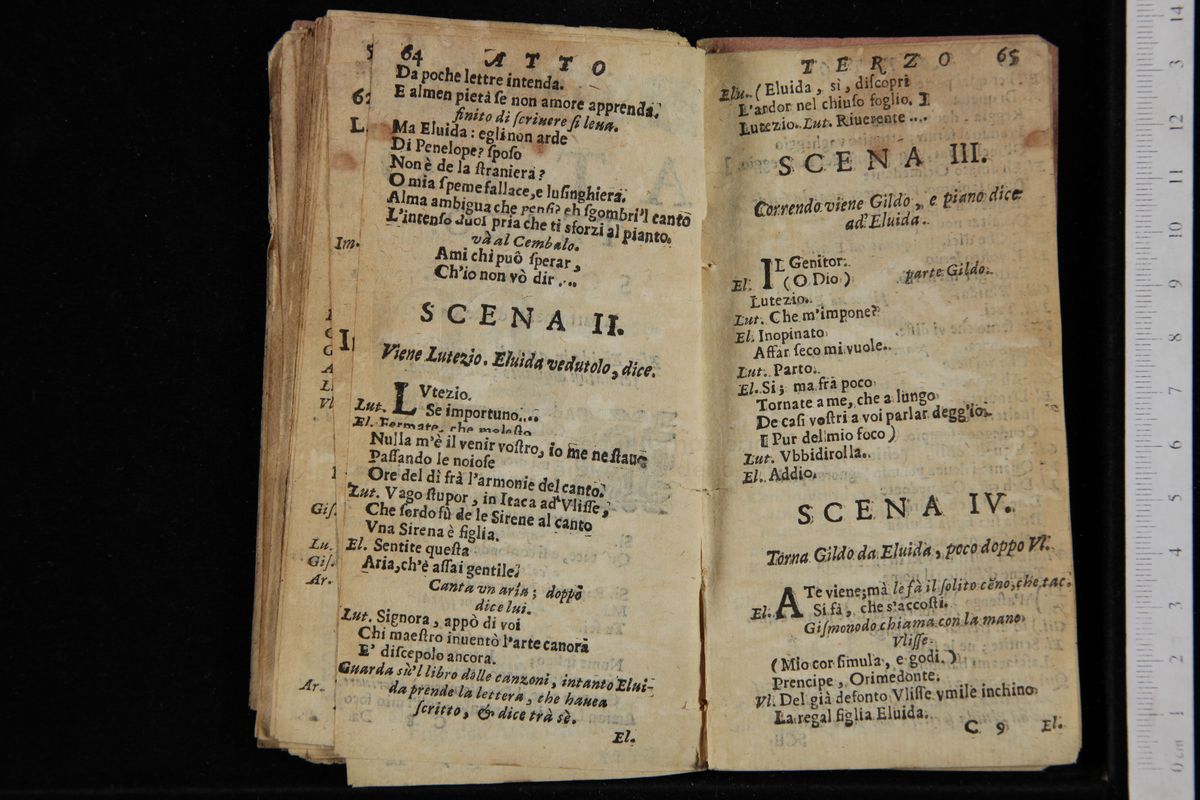 64 ATTO
Da poche lettre intenda.
E almen pietà se non amore apprenda.
finito di ſcriuere ſi leua.
Ma Eluida: egli non arde
Di Penelope? ſpoſo
Non è de la ſtraniera?
O mia ſpeme fallace, e luſinghiera.
Alma ambigua che penſi? eh sgombri'l canto
L'intenſo duol pria che ti sforzi al pianto.
và al Cembalo.
Ami chi può ſperar,
Ch'io non vò dir ....
SCENA II.
Viene Lutezio. Eluida vedutolo, dice.
LVtezio.
Lut. Se importuno....
El. Fermate, che moleſto
Nulla m'è il venir voſtro, io me ne ſtaua
Paſſando le noioſe
Ore del dì frà l'armonie del canto.
Lut. Vago ſtupor, in Itaca ad Vliſſe,
Che ſordo fù de le Sirene al canto
Vna Sirena è figlia.
El. Sentite queſta
Aria, ch'è aſſai gentile.
Canta vn aria; doppo
dice lui.
Lut. Signora, appò di voi
Chi maeſtro inuentò l'arte canora
E' diſcepolo ancora.
Guarda sù'l libro dalle canzoni, intanto Elui-
da prende la lettera, che hauea
ſcritto, & dice trà sè.
El.
TERZO 65
Elu. (Eluida, sì, diſcopri
L'ardor nel chiuſo foglio.)
Lutezio. Lut. Riuerente ....
SCENA III.
Correndo viene Gildo, e piano dice
ad Eluida.
IL Genitor.
El. (O Dio) parte Gildo.
Lutezio.
Lut. Che m'impone?
El. Inopinato
Affar ſeco mi vuole.
Lut. Parto.
El. Sì; ma frà poco
Tornate a me, che a lungo
De caſi voſtri a voi parlar degg'io.
(Pur del mio foco)
Lut. Vbbidirolla.
El. Addio.
SCENA IV.
Torna Gildo da Eluida, poco doppo Vl.
A Te viene; mà le fà il ſolito ceno, che tac.
El. Si fà, che s'accoſti.
Giſmonodo chiama con la mano
Vliſſe.
(Mio cor ſimula, e godi.)
Prencipe, Orimedonte.
Vl. Del già defonto Vliſſe vmile inchino
La regal figlia Eluida.
C 9 El.